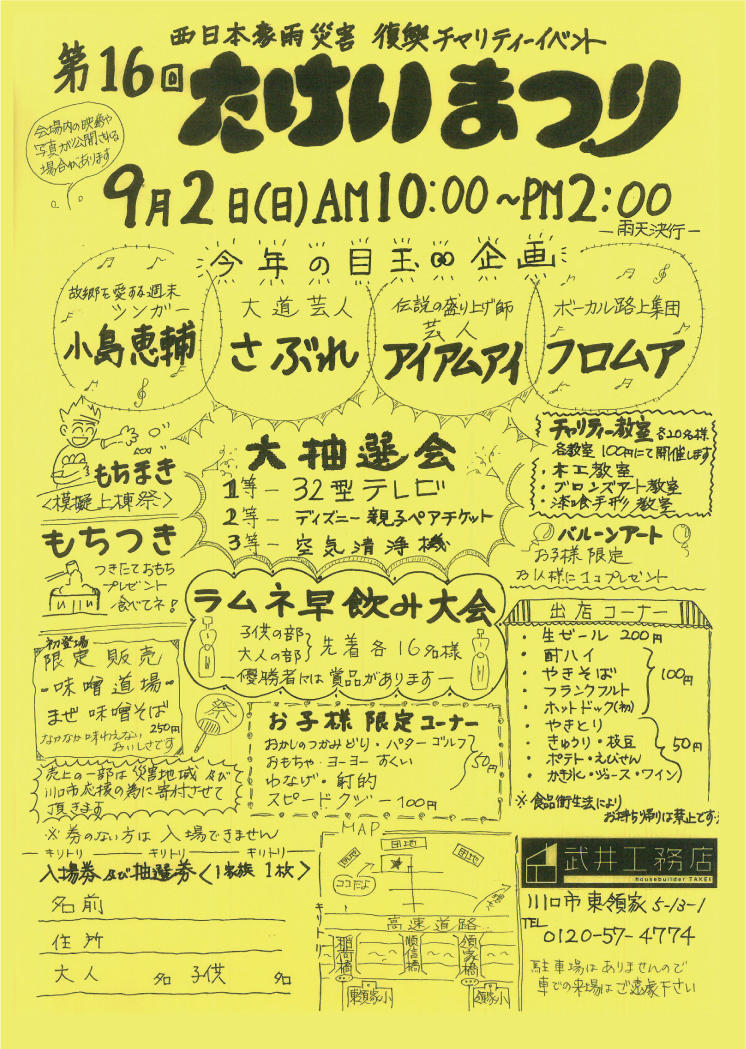 西日本豪雨災害 復興チャリティーイベント
第16回
たけいまつり
会場内の映像や
写真が公開される
場合があります
9月2日(日)AM10:00~PM2:00
―雨天決行―
今年の目玉の企画
故郷を愛する週末
シンガー
小島恵輔
大道芸人
さぶれ
伝説の盛り上げ師
芸人
アイアムアイ
ボーカル路上集団
フロムア
もちまき
<模擬上棟祭>
大抽選会
1等― 32型テレビ
2等― ディズニー親子ペアチケット
3等― 空気清浄機
チャリティー教室 各20名様
各教室100円にて開催します
・木工教室
・ブロンズアート教室
・漆喰手形り教室
もちつき
つきたておもち
プレゼント
食べてネ!
バルーンアート
お子様限定
お1人様に1コプレゼント
ラムネ早飲み大会
子供の部
大人の部
先着各16名様
―優勝者には賞品があります―
初登場
限定販売
-味噌道場-
まぜ味噌そば
250円
なかなか味わえない
おいしさです
祭
お子様限定コーナー
おかしのつかみどり・パターゴルフ
おもちゃ・ヨーヨーすくい
わなげ・射的
50円
スピードクジー100円
出店コーナー
・生ビール 200円
・酎ハイ
・やきそば
・フランクフルト
・ホットドック(初)
100円
・やきとり
・きゅうり・枝豆
・ポテト・えびせん
・かき氷・ジュース・ワイン
50円
※食品衛生法により
お持ち帰りは禁止です
売上の一部は災害地域及び
川口市応援の為に寄付させて
頂きます
※券のない方は入場できません
キリトリ キリトリ キリトリ
入場券及び抽選券<1家族1枚>
名前
住所
大人 名 子供 名
キリトリ
MAP
団地
団地
団地
ココだよ
高速道路
稲荷橋
順信橋
領家橋
東領家小
領家小
武井工務店
housebuilder TAKEI
川口市東領家5-13-1
TEL
0120-57-4774
駐車場はありませんので
車での来場はご遠慮下さい